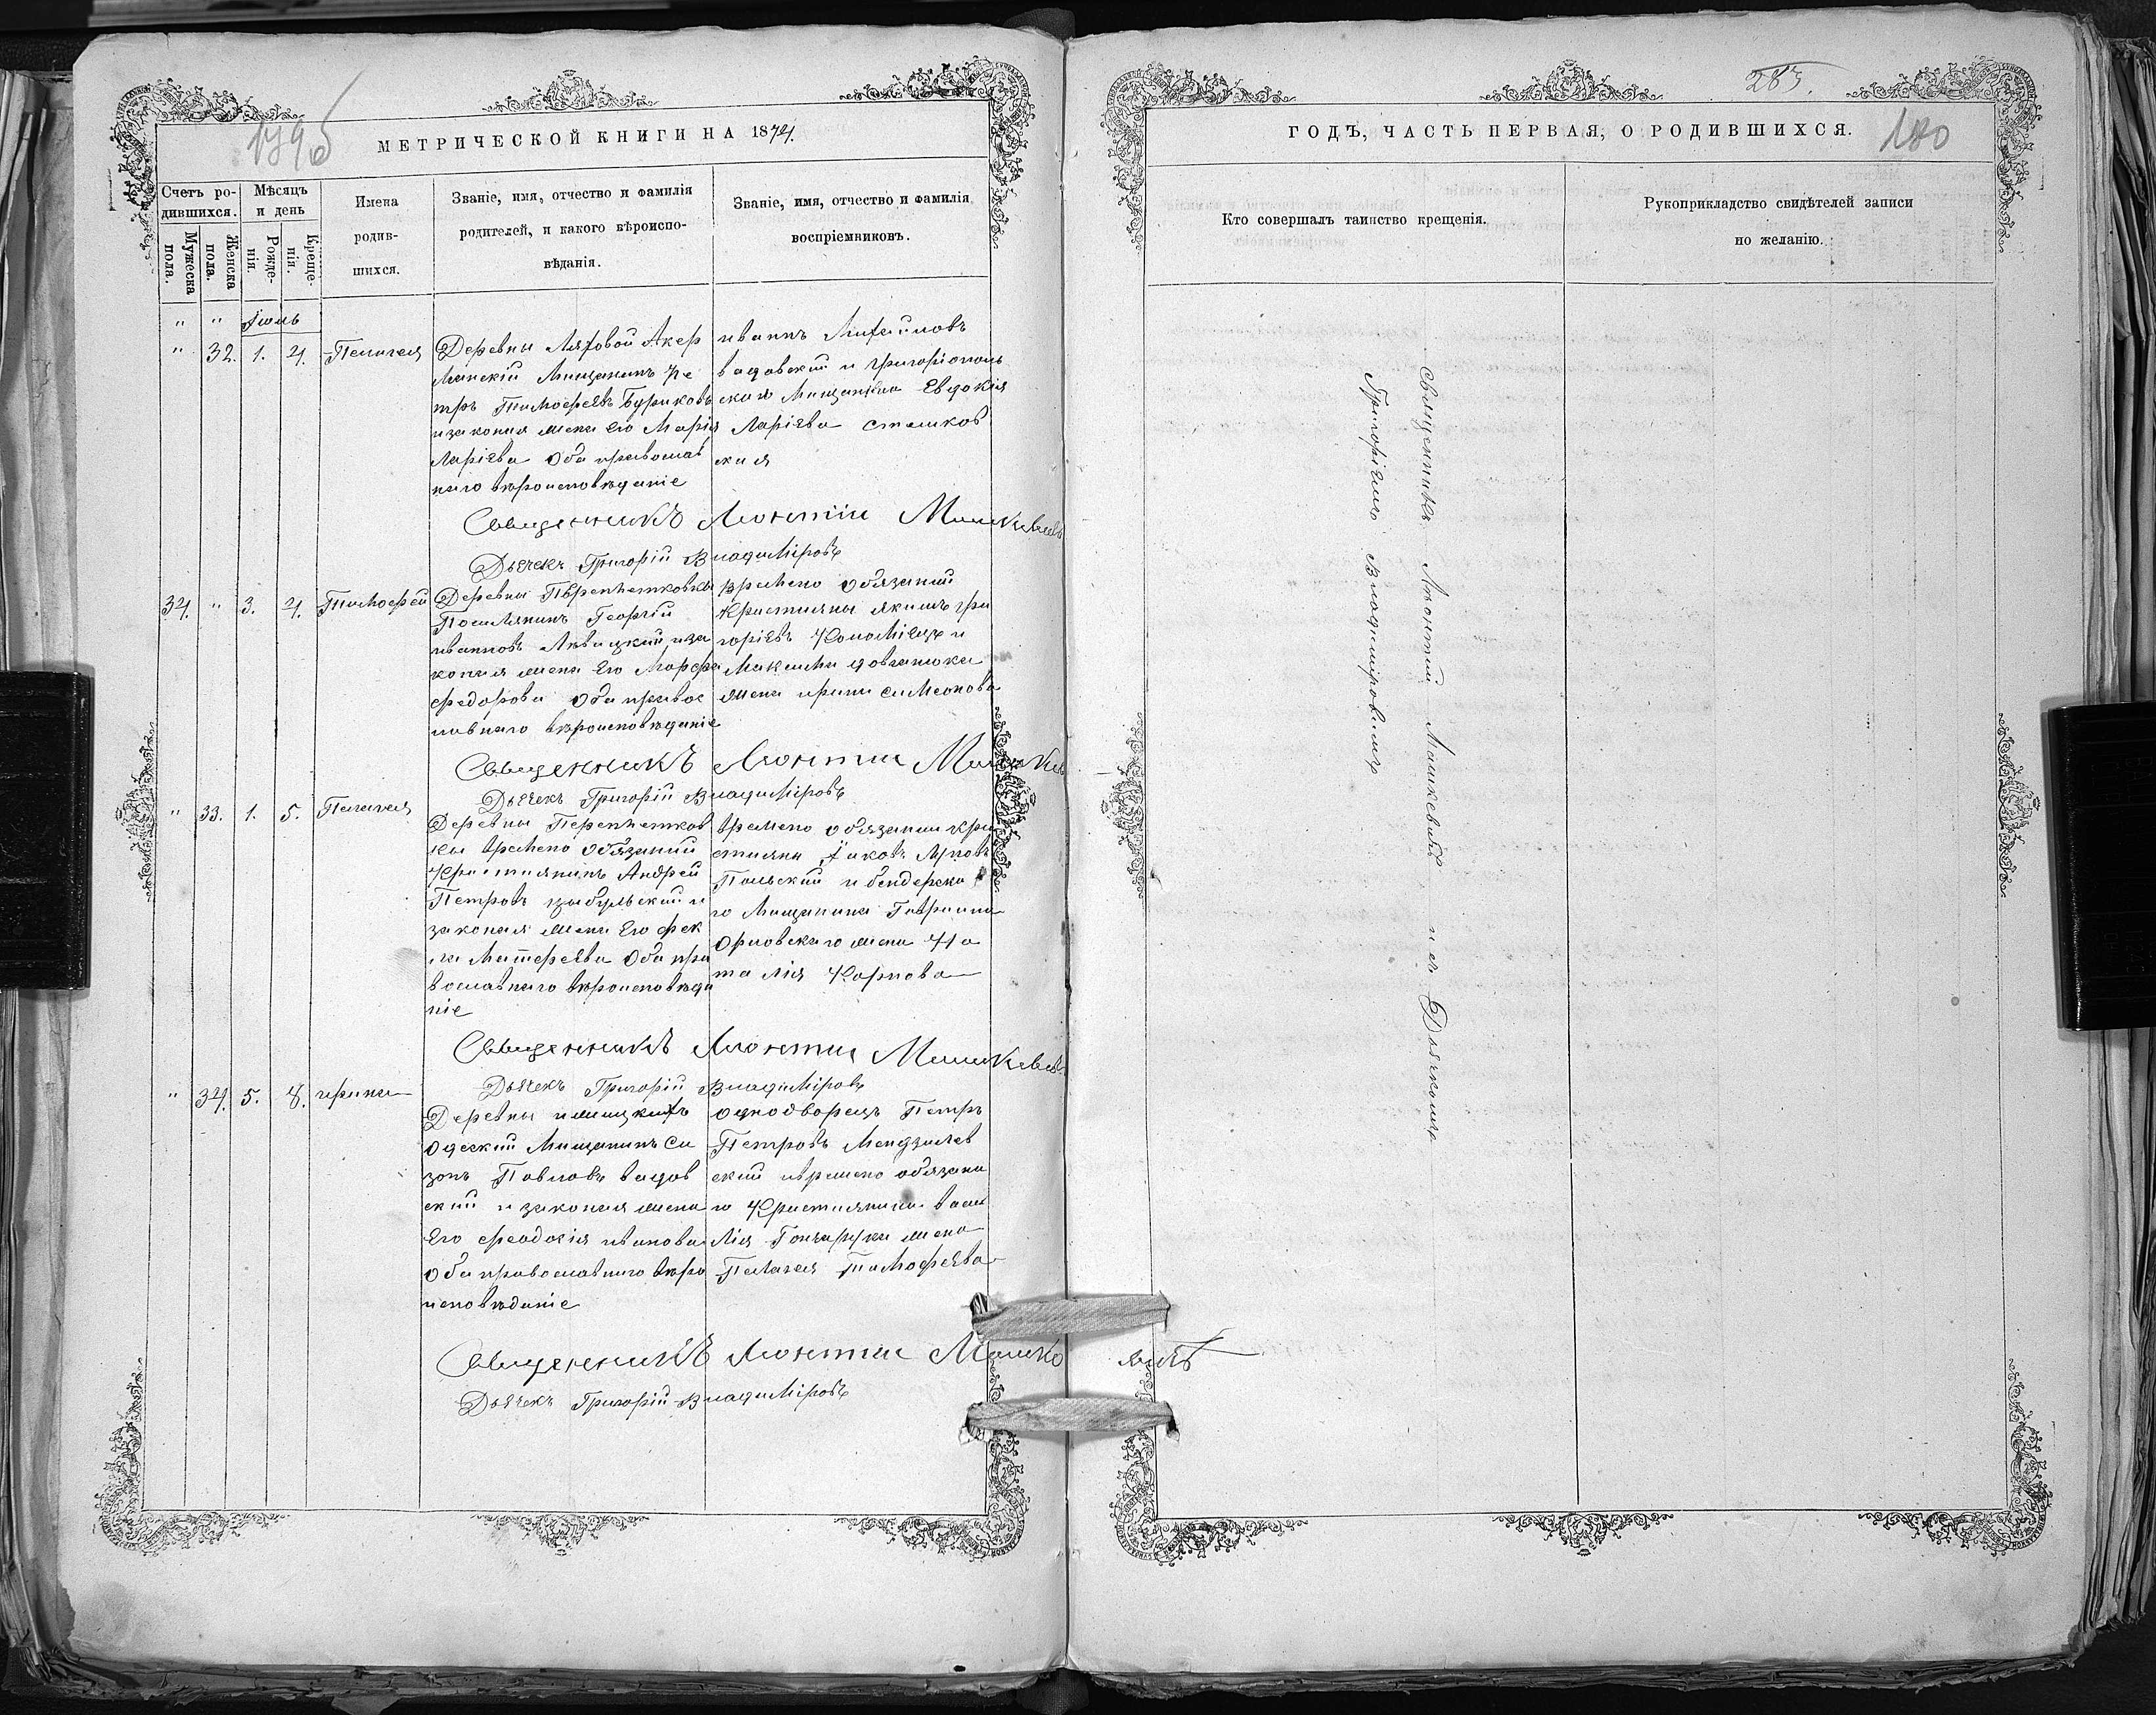 МЕТРИЧЕСКОЙ КНИГИ НА 1874.
Счетъ ро-
дившихся.
Мужеска
пола.
Женска
пола.
Мѣсяцъ
и день
Рожде-
нія.
Креще-
нія.
Имена
родив-
шихся.
Званіе, имя, отчество и фамилія
родителей, и какого вѣроиспо-
вѣданія.
Званіе, имя, отчество и фамилія
воспріемниковъ.
" " Іюль
" 32. 1. 4. Пелагея
Деревни Ляховой Акер
манскій Мищанинъ Пе
тръ Тимофеевъ Буриковъ
и закония жена Его Марія
Ларіева Оба православ
наго вѣроисповѣданіе
иванъ
вадовский и Григоріополь
ская Мищанка Евдокія
Ларіева сташков
ская
Священникъ Леонтий Машкевичъ
Дьячекъ Григорій Владиміровъ
34. " 3. 4. Тимофей
Деревни
Поселянинъ Георгій
ивановъ Левицкий и за
кония жена Его Марфа
федорова Оба правос
лавнаго вѣроисповѣданіе
времено обязаний
Кристияны якимъ гри
горіевъ Коломіецъ и
Максима довганюка
жена ирина симеонова
Священникъ Леонтий
Дьячекъ Григорій Владиміровъ
" 33. 1. 5. Пелагея
Деревни
ки времено обязаний
Кристиянинъ Андрей
Петровъ цыбульский и
закония жена Его фек
ла Матфеева Оба пра
вославнаго вѣроисповѣда
ніе
времено обязании кри
стияни Іаковъ
Польский и бендерска
го Мищанина Гавриила
Орловскаго жена На
та лія Карпова
Священникъ Леонтий Машкевичъ
Дьячекъ Григорій Владиміровъ
" 34. 5. 8. ирина
Деревни
Одеский Мищанинъ Си
зонъ Павловъ вадов
ский и закония жена
Его феодосія иванова
Оба православнаго вѣро
исповѣданіе
однодворецъ Петръ
Петровъ
ский и времено обязана
го Кристиянина васи
лія Гончарука жена
Пелагея Тимофеева
Священникъ Леонтий Машкевичъ
Дьячекъ Григорій Владиміровъ
283.
180
ГОДЪ, ЧАСТЬ ПЕРВАЯ, О РОДИВШИХСЯ.
Кто совершалъ таинство крещенія.
Рукоприкладство свидѣтелей записи
по желанію.
Священникъ Леонтий Машкевичъ и съ Дьячкомъ
Григоріемъ Владиміровимъ